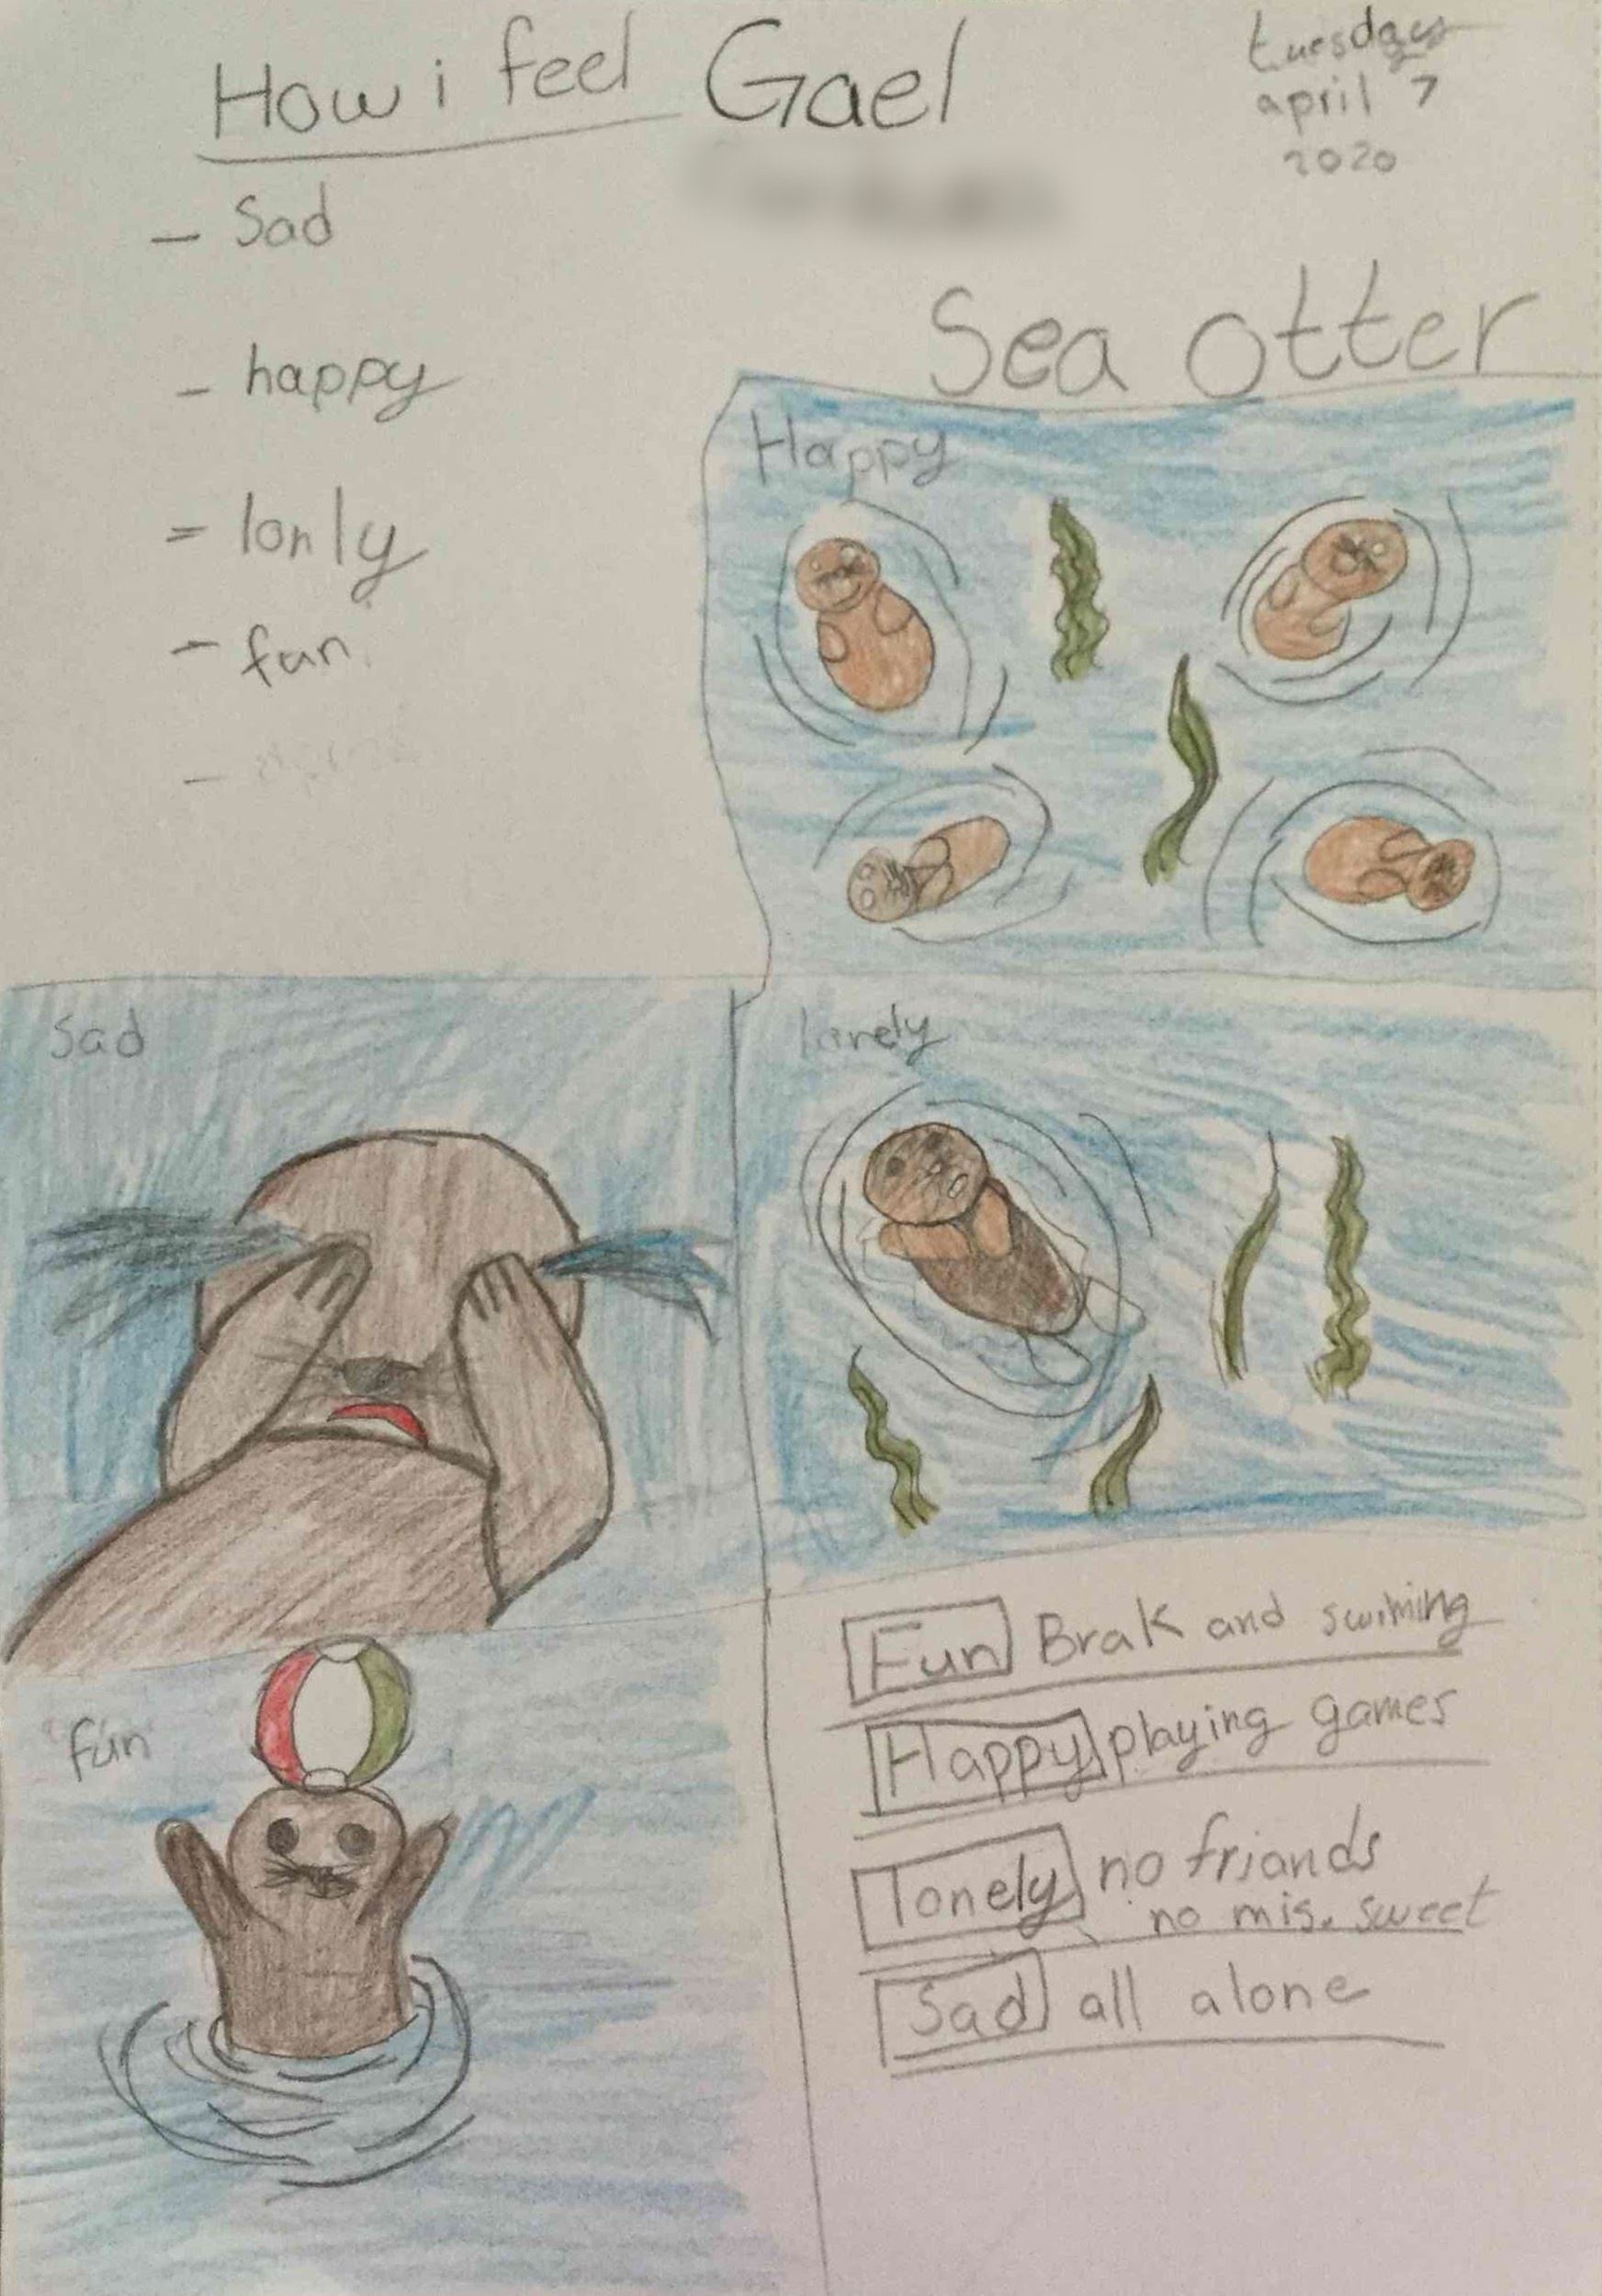 How i feel Gael
tuesday
april 7
2020
- Sad
- happy
= lonly
- fun
-
Sea otter
Happy
Sad
lonely
fun
Fun Brak and swiming
Happy playing games
lonely no friands
no mis. sweet
Sad all alone